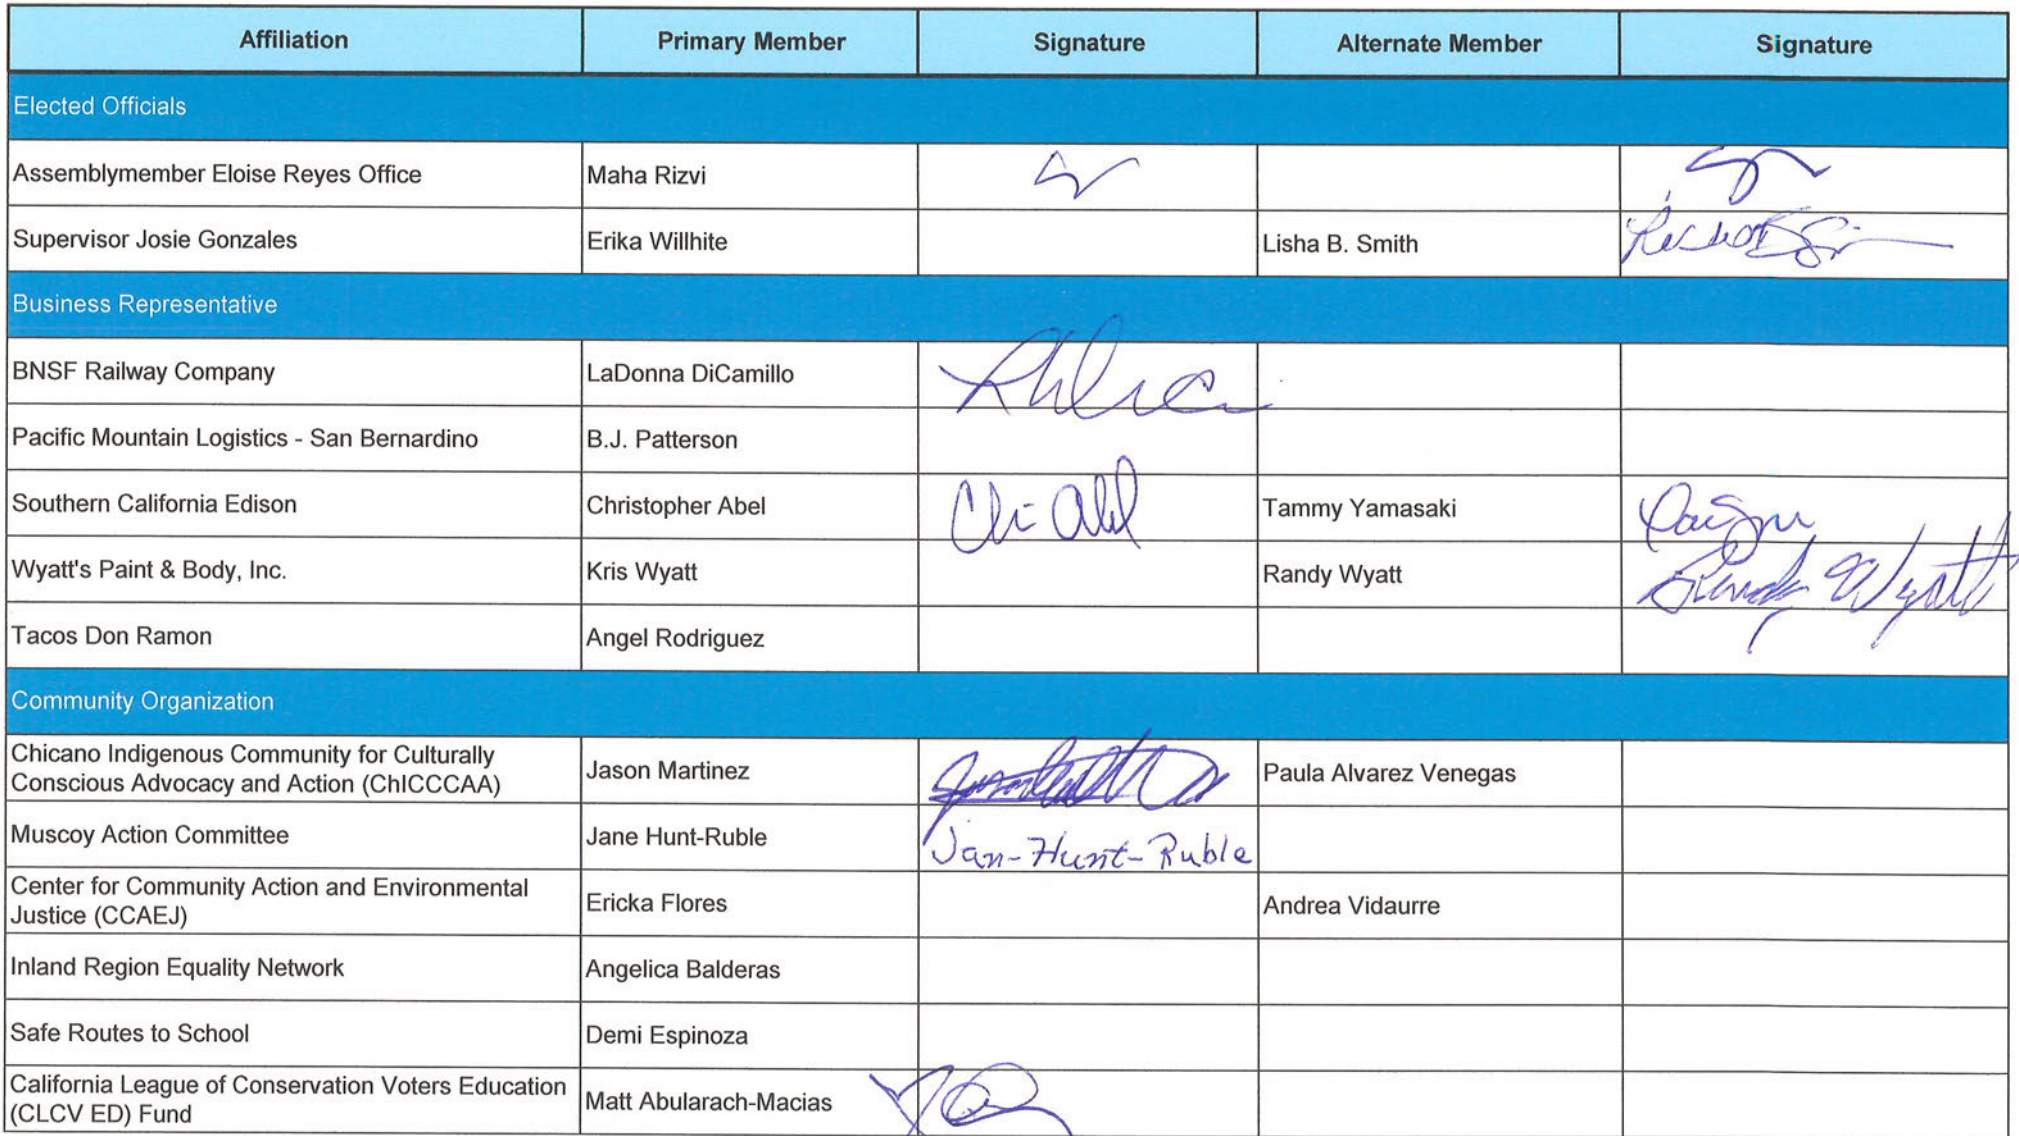 Affiliation Primary Member Signature Alternate Member Signature
Elected Officials
Assemblymember Eloise Reyes Office Maha Rizvi
Supervisor Josie Gonzales Erika Willhite Lisha B. Smith
Business Representative
BNSF Railway Company LaDonna DiCamillo
Pacific Mountain Logistics - San Bernardino B.J. Patterson
Southern California Edison Christopher Abel Tammy Yamasaki
Wyatt's Paint & Body, Inc. Kris Wyatt Randy Wyatt Randy Wyatt
Tacos Don Ramon Angel Rodriguez
Community Organization
Chicano Indigenous Community for Culturally
Conscious Advocacy and Action (ChICCCAA) Jason Martinez Paula Alvarez Venegas
Muscoy Action Committee Jane Hunt-Ruble Jan-Hunt-Ruble
Center for Community Action and Environmental
Justice (CCAEJ) Ericka Flores Andrea Vidaurre
Inland Region Equality Network Angelica Balderas
Safe Routes to School Demi Espinoza
California League of Conservation Voters Education
(CLCV ED) Fund Matt Abularach-Macias